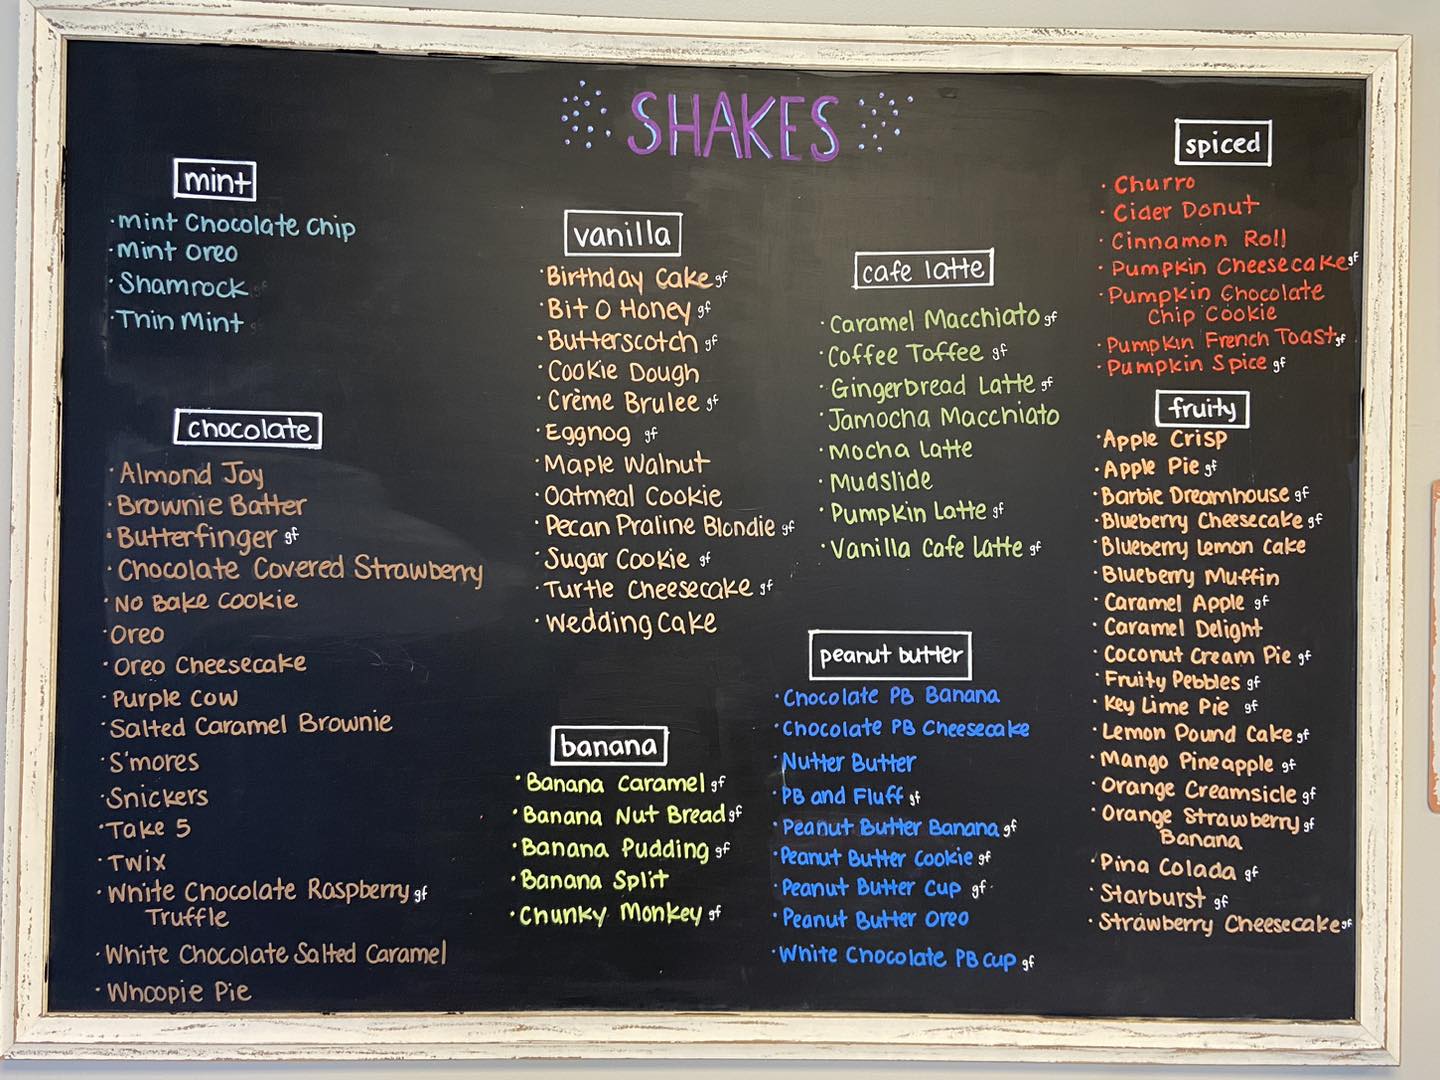 SHAKES
mint
· Mint Chocolate Chip
· Mint Oreo
· Shamrock
· Thin Mint
chocolate
· Almond Joy
· Brownie Batter
· Butterfinger gf
· Chocolate Covered Strawberry
· No Bake Cookie
· Oreo
· Oreo Cheesecake
· Purple Cow
· Salted Caramel Brownie
· S'mores
· Snickers
· Take 5
· Twix
· White Chocolate Raspberry gf
Truffle
· White Chocolate Salted Caramel
· Whoopie Pie
vanilla
· Birthday Cake gf
· Bit O Honey gf
· Butterscotch gf
· Cookie Dough
· Crème Brulee gf
· Eggnog gf
· Maple Walnut
· Oatmeal Cookie
· Pecan Praline Blondie gf
· Sugar Cookie gf
· Turtle Cheesecake gf
· Wedding Cake
banana
· Banana Caramel gf
· Banana Nut Bread gf
· Banana Pudding gf
· Banana Split
· Chunky Monkey gf
cafe latte
· Caramel Macchiato gf
· Coffee Toffee gf
· Gingerbread Latte gf
· Jamocha Macchiato
· Mocha Latte
· Mudslide
· Pumpkin Latte gf
· Vanilla Cafe Latte gf
peanut butter
· Chocolate PB Banana
· Chocolate PB Cheesecake
· Nutter Butter
· PB and Fluff gf
· Peanut Butter Banana gf
· Peanut Butter Cookie gf
· Peanut Butter Cup gf
· Peanut Butter Oreo
· White Chocolate PB cup gf
spiced
· Churro
· Cider Donut
· Cinnamon Roll
· Pumpkin Cheesecake gf
· Pumpkin Chocolate
Chip Cookie
· Pumpkin French Toast gf
· Pumpkin Spice gf
fruity
· Apple Crisp
· Apple Pie gf
· Barbie Dreamhouse gf
· Blueberry Cheesecake gf
· Blueberry Lemon Cake
· Blueberry Muffin
· Caramel Apple gf
· Caramel Delight
· Coconut Cream Pie gf
· Fruity Pebbles gf
· Key Lime Pie gf
· Lemon Pound Cake gf
· Mango Pineapple gf
· Orange Creamsicle gf
· Orange Strawberry gf
Banana
· Pina Colada gf
· Starburst gf
· Strawberry Cheesecake gf